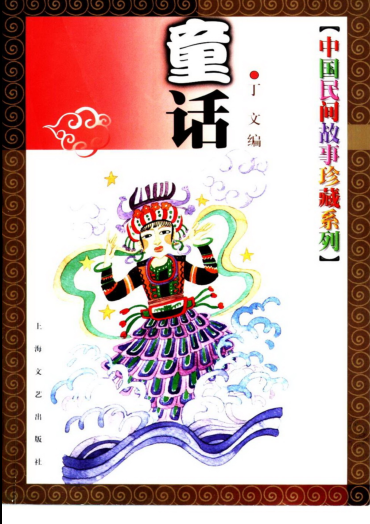 【中国民间故事珍藏系列】
童话
●丁文编
上海文艺出版社